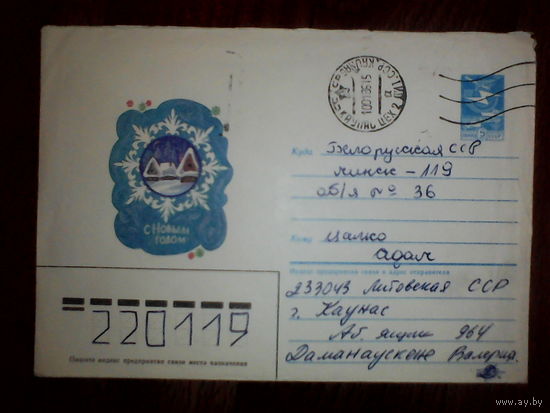 С Новым
годом
Куда Белорусская ССР
минск-119
об/я № 36
Кому Цалко
Адам
Индекс предприятия связи и адрес отправителя
233043 Литовская ССР
г. Каунас
Аб. ящик 964
Даманаускене Валерия
220119
Пишите индекс предприятия связи места назначения
www.ay.by